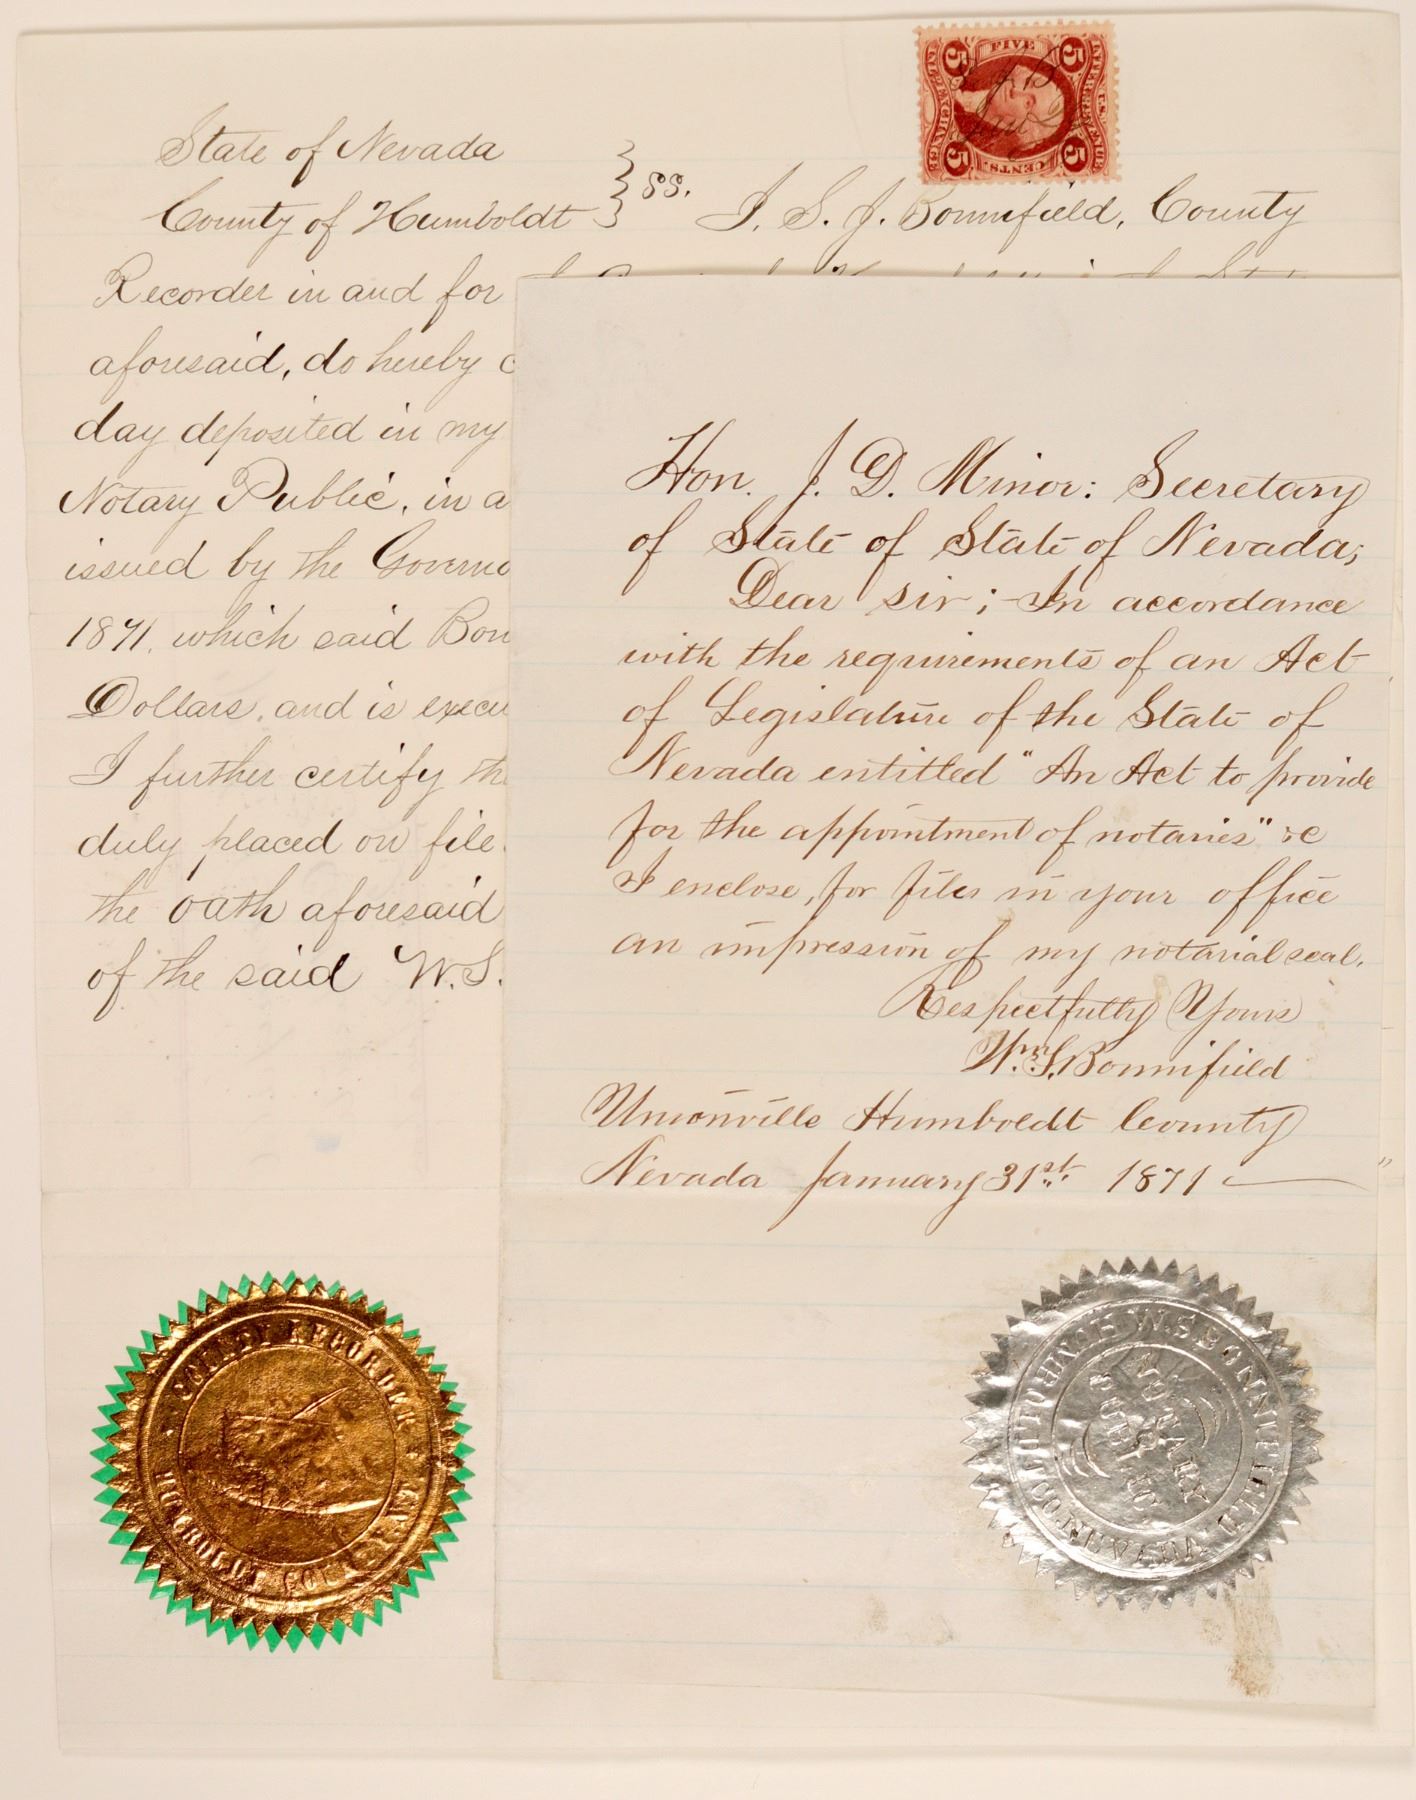 FIVE
5 5
U.S. INTER. REV.
INTER. EXCHANGE
5 CENTS. 5
State of Nevada
County of Humboldt } ss. I. S. J. Bonnifield, County
Recorder in and for
aforesaid, do hereby c
day deposited in my
Notary Public, in a
issued by the Governo
1871, which said Bon
Dollars, and is execu
I further certify th
duly placed on file
the oath aforesaid
of the said W. S.
Hon. J. D. Minor: Secretary
of State of State of Nevada;
Dear sir; In accordance
with the requirements of an Act
of Legislature of the State of
Nevada entitled "An Act to provide
for the appointment of notaries" &c
I enclose, for files in your office
an impression of my notarial seal.
Respectfully Yours
Wm. S. Bonnifield
Unionville Humboldt County
Nevada January 31st. 1871
COUNTY RECORDER
HUMBOLDT CO.
W.S. BONNIFIELD
NOTARY
PUBLIC
CO. NEVADA